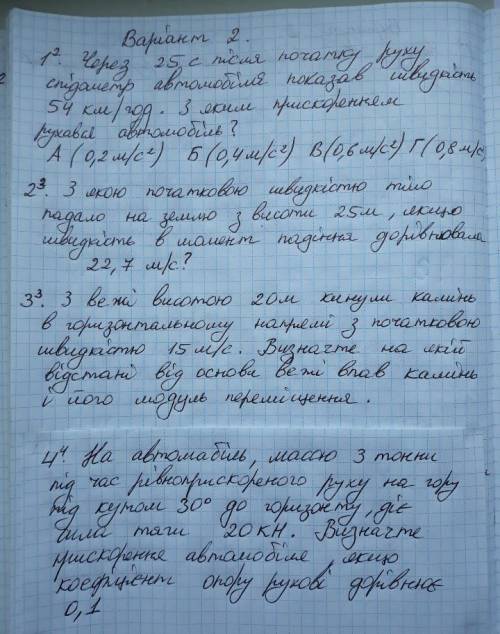 Варіант 2.
1². Через 25 с після початку руху
спідометр автомобіля показав швидкість
54 км/год. З яким прискоренням
рухався автомобіль?
А (0,2 м/с²) Б (0,4 м/с²) В (0,6 м/с²) Г (0,8 м/с
2³. З якою початковою швидкістю тіло
падало на землю з висоти 25м, якщо
швидкість в момент падіння дорівнювала
22,7 м/с?
3³. З вежі висотою 20м кинули камінь
в горизонтальному напрямі з початковою
швидкістю 15 м/с. Визначте на якій
відстані від основи вежі впав камінь
і його модуль переміщення.
4⁴. На автомабіль, массою 3 тонни
під час рівноприскореного руху на гору
під кутом 30° до горизонту, діє
сила тяги 20 кН. Визначте
прискорення автомобіля, якщо
коефіцієнт опору рухові дорівнює
0,1